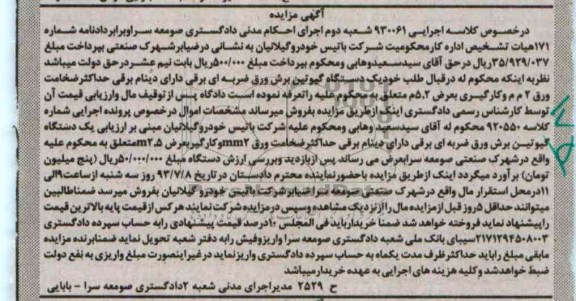 آگهی مزایده
درخصوص کلاسه اجرایی ۹۳۰۰۶۱ شعبه دوم اجرای احکام مدنی دادگستری صومعه سرا وبرابر دادنامه شماره
۱۷۱هیات تشخیص اداره کار محکومیت شرکت باتیس خودرو گیلانیان به نشانی در ضیابر شهرک صنعتی بپرداخت مبلغ
۳۵/۹۲۹/۰۳۷ریال در حق آقای سیدسعیدوهابی ومحکوم بپرداخت مبلغ ۵۰۰/۰۰۰ریال بابت نیم عشر در حق دولت میباشد
نظر به اینکه محکوم له درقبال طلب خود یک دستگاه گیوتین برش ورق ضربه ای برقی دارای دینام برقی حداکثر ضخامت
ورق ۲ م م وکارگیری بعرض ۲.۵م متعلق به محکوم علیه را تعرفه نموده است دادگاه پس از توقیف مال وارزیابی قیمت آن
توسط کارشناس رسمی دادگستری اینک از طریق مزایده بفروش میرساند مشخصات اموال درخصوص پرونده اجرایی شماره
کلاسه ۹۲۰۵۵۰ محکوم له آقای سیدسعید وهابی ومحکوم علیه شرکت باتیس خودرو گیلانیان مبنی بر ارزیابی یک دستگاه
گیوتین برش ورق ضربه ای برقی دارای دینام برقی حداکثر ضخامت ورق mm۲ وکارگیر بعرض ۲.۵mمتعلق به محکوم علیه
واقع در شهرک صنعتی صومعه سرا بعرض می رساند پس از بازدید وبررسی ارزش دستگاه مبلغ ۵۰/۰۰۰/۰۰۰ریال (پنج میلیون
تومان) بر آورد میگردد اینک از طریق مزایده باحضور نماینده محترم دادستان در تاریخ ۹۳/۷/۸ روز سه شنبه از ساعت ۹الی
۱۱در محل استقرار مال واقع در شهرک صنعتی صومعه سرا ضیابر شرکت باتیس خودرو گیلانیان بفروش میرسد ضمنا طالبین
میتوانند حداقل ۵روز قبل از مزایده مال را از نزدیک مشاهده وسپس در مزایده شرکت نمایند هر کس از قیمت پایه بالاترین قیمت
را پیشنهاد نماید فروخته خواهد شد ضمنا خریدار باید فی المجلس ۱۰درصد قیمت پیشنهادی را به حساب سپرده دادگستری
۲۱۷۱۲۹۴۵۰۸۰۰۳سیبای بانک ملی شعبه دادگستری صومعه سرا واریز وفیش را به دفتر شعبه تحویل نماید ضمنا برنده مزایده
مابقی مبلغ را باید حداکثر ظرف مدت یکماه به حساب سپرده دادگستری واریز نماید در غیر اینصورت مبلغ واریزی به نفع دولت
ضبط خواهد شد و کلیه هزینه های اجرایی به عهده خریدار میباشد
ح ۲۵۲۹ مدیر اجرای مدنی شعبه ۲دادگستری صومعه سرا - بابایی